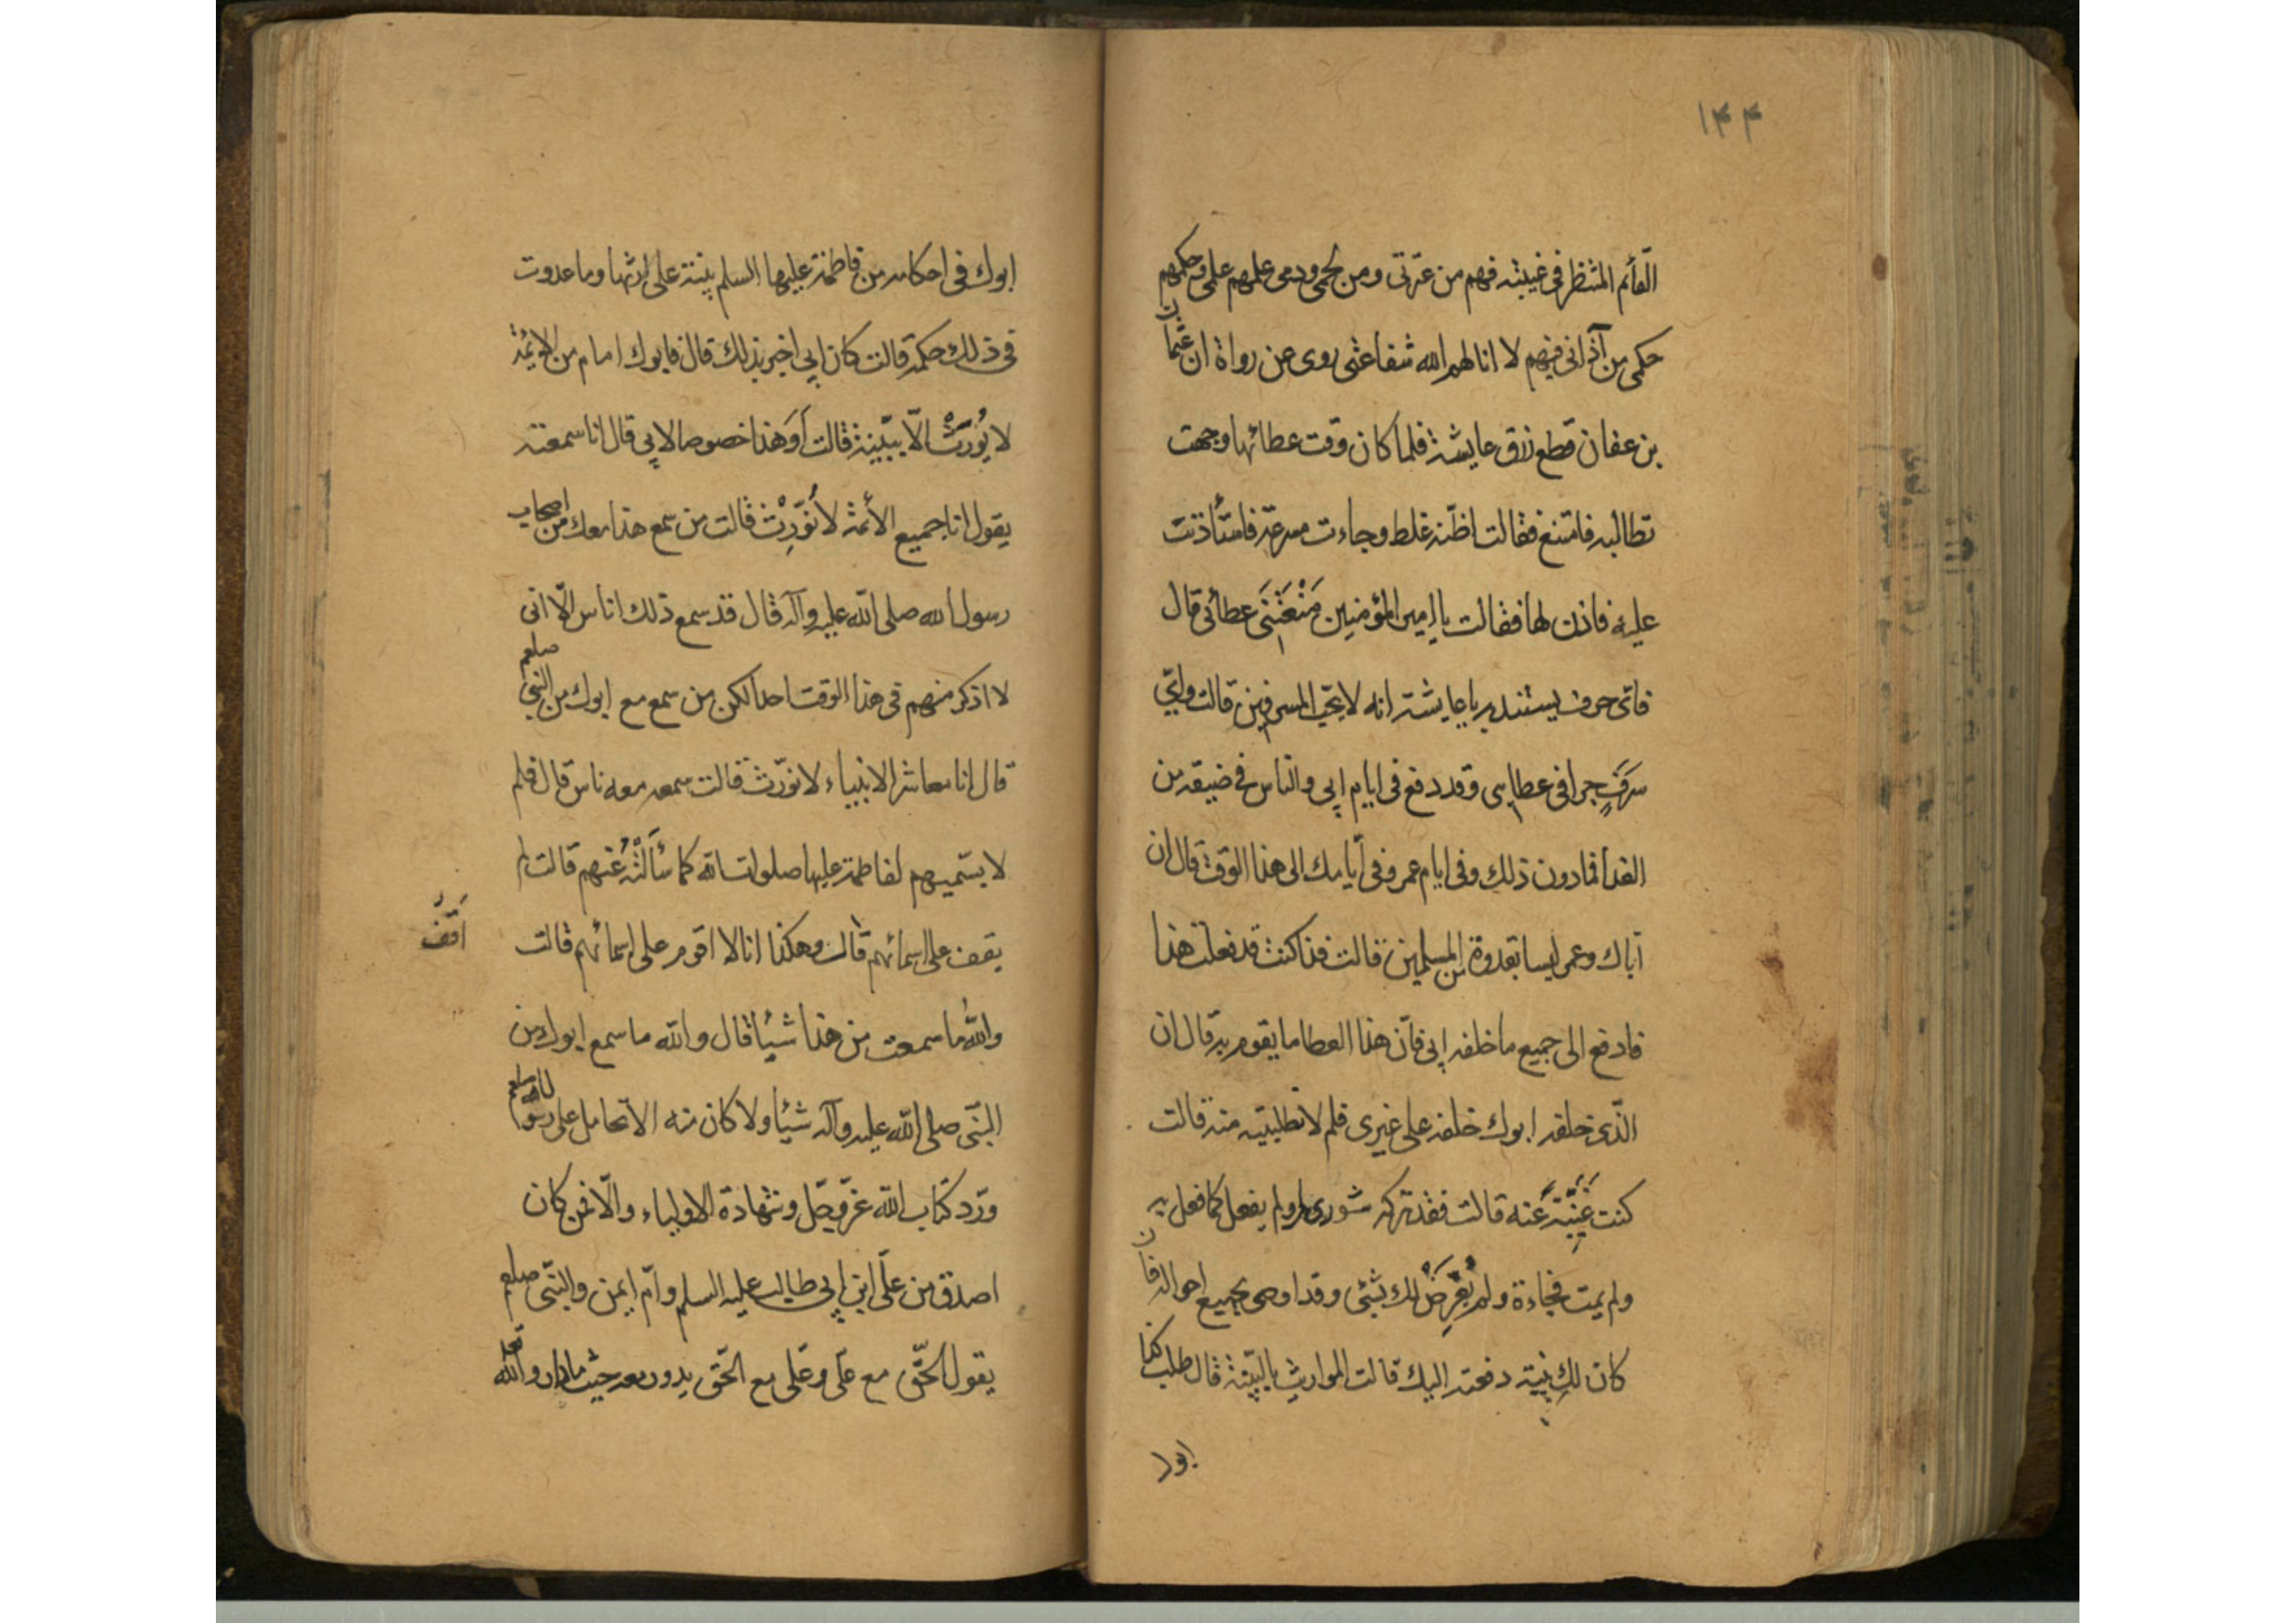 ١٤٤
القائم المنتظر في غيبته فهم من عترتي ومن لحمي ودمي علمهم علمي وحكمهم
حكمي من آذاني فيهم لا انالهم الله شفاعتي روى عن رواة ان عثمان
بن عفان قطع رزق عايشة فلما كان وقت عطائها وجهت
تطالبه فامتنع فقالت اظنه غلط وجاءت مسرعة فاستأذنت
عليه فاذن لها فقالت يا امير المؤمنين مَنَعْتَني عطائي قال
فاي حرف يستند به يا عايشة انه لا يحب المسرفين قالت واي
سَرَفٍ جرا في عطاي وقد دفع في ايام ابي والناس في ضيقة من
الغدا فما دون ذلك وفي ايام عمر وفي أيامك الى هذا الوقت قال ان
اباك وعمر ليسا بقدوة المسلمين قالت فذا كنت قد فعلت هذا
فادفع الى جميع ما خلفه ابي فان هذا العطا ما يقوم به قال ان
الذي خلفه ابوك خلفه على غيري فلم لا تطلبيه منه قالت
كنت غَنِيَّة عنه قالت فقد تركه شورى ولم يفعل كما فعل به
ولم يمت فجاءة ولم يُعَرِّضْ لك بشئ وقد اوصى بجميع احواله فان
كان لكِ بينة دفعته اليك قالت المواريث بالبينة قال طلب كذا
ابوك
ابوك في احكامه من فاطمة عليها السلم بينة على ارثها وما عدوت
في ذلك حكمه قالت كان ابي اخبر بذلك قال فابوك امام من الائمة
لا يُورَثْ الّا ببينة قالت أَوَهذا خصوصا لابي قال انا سمعته
يقول انا جميع الأئمة لا نُوَرِّثْ قالت من سمع هذا معك من اصحاب
رسول الله صلى الله عليه وآله قال قد سمع ذلك اناس الّا اني
لا اذكر منهم في هذا الوقت احدا لكن من سمع مع ابوك من النبي صلعم
قال انا معاشر الانبياء لا نورّث قالت سمعه معه ناس قال فلم
لا يسّميهم لفاطمة عليها صلوات الله كما سَأَلَتْهُ عنهم قالت لم
يقف على اسمائهم قال وهكذا انا لا اقوم على اسمائهم قالت
أقف
والله ما سمعت من هذا شيئا قال والله ما سمع ابوك من
النبّي صلى الله عليه وآله شيئا ولا كان منه الا تحامل على رسول الله صلعم
وردّ كتاب الله عزّ وجلّ وشهادة الاولياء والّا فمن كان
اصدق من علّى ابن ابي طالب عليه السلم وامّ ايمن والنبّي صلعم
يقول الحّق مع علّى وعلّى مع الحّق يدور معه حيث ما دار والله